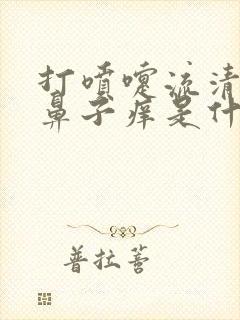 打喷嚏流清
鼻子痒是什
普拉菩